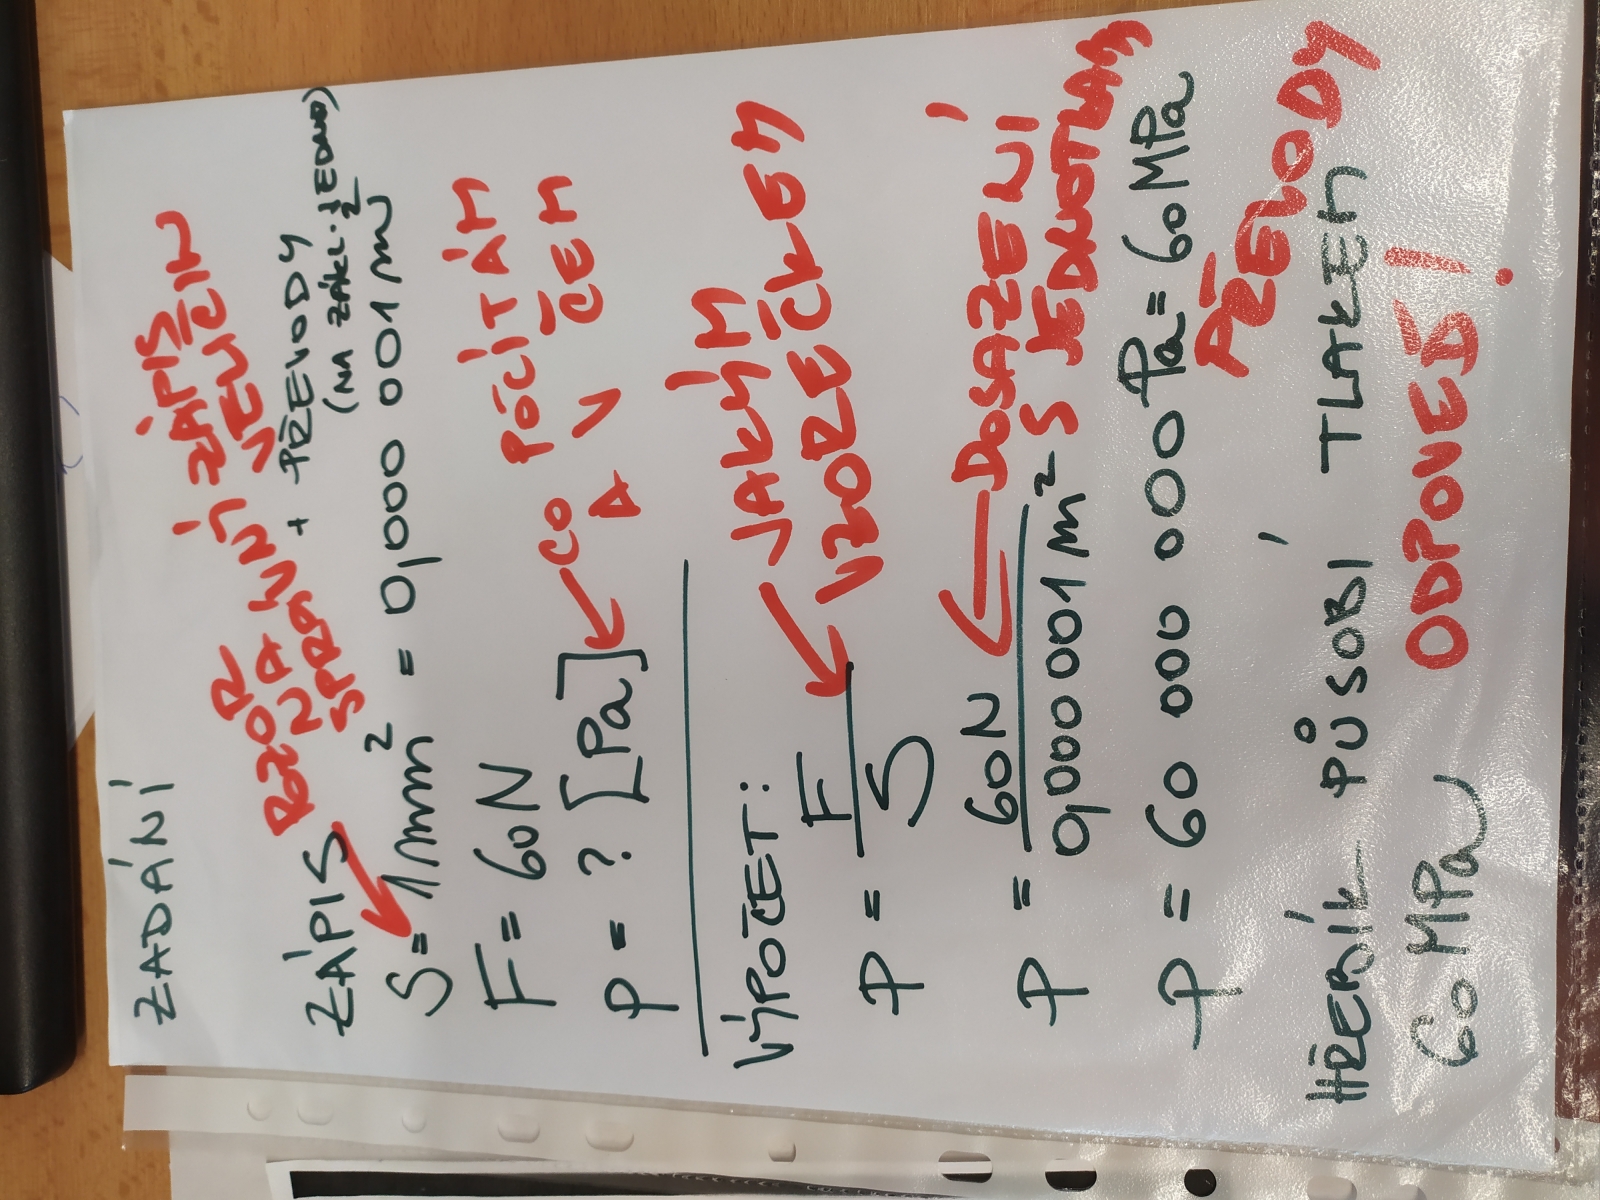 ZADÁNÍ
POZOR NA SPRÁVNÝ ZÁPIS VELIČIN
ZÁPIS + PŘEVODY
(NA ZÁKL. JEDNO)
S = 1mm² = 0,000 001 m²
F = 60N
P = ? [Pa] ← CO POČÍTÁM
A V ČEM
VÝPOČET:
P = F/S ← JAKÝM
VZOREČKEM
P = 60N / 0,000 001 m² ← DOSAZENÍ
S JEDNOTKAMI
P = 60 000 000 Pa = 60 MPa
PŘEVODY
HŘEBÍK PŮSOBÍ TLAKEM
60 MPa ODPOVEĎ!